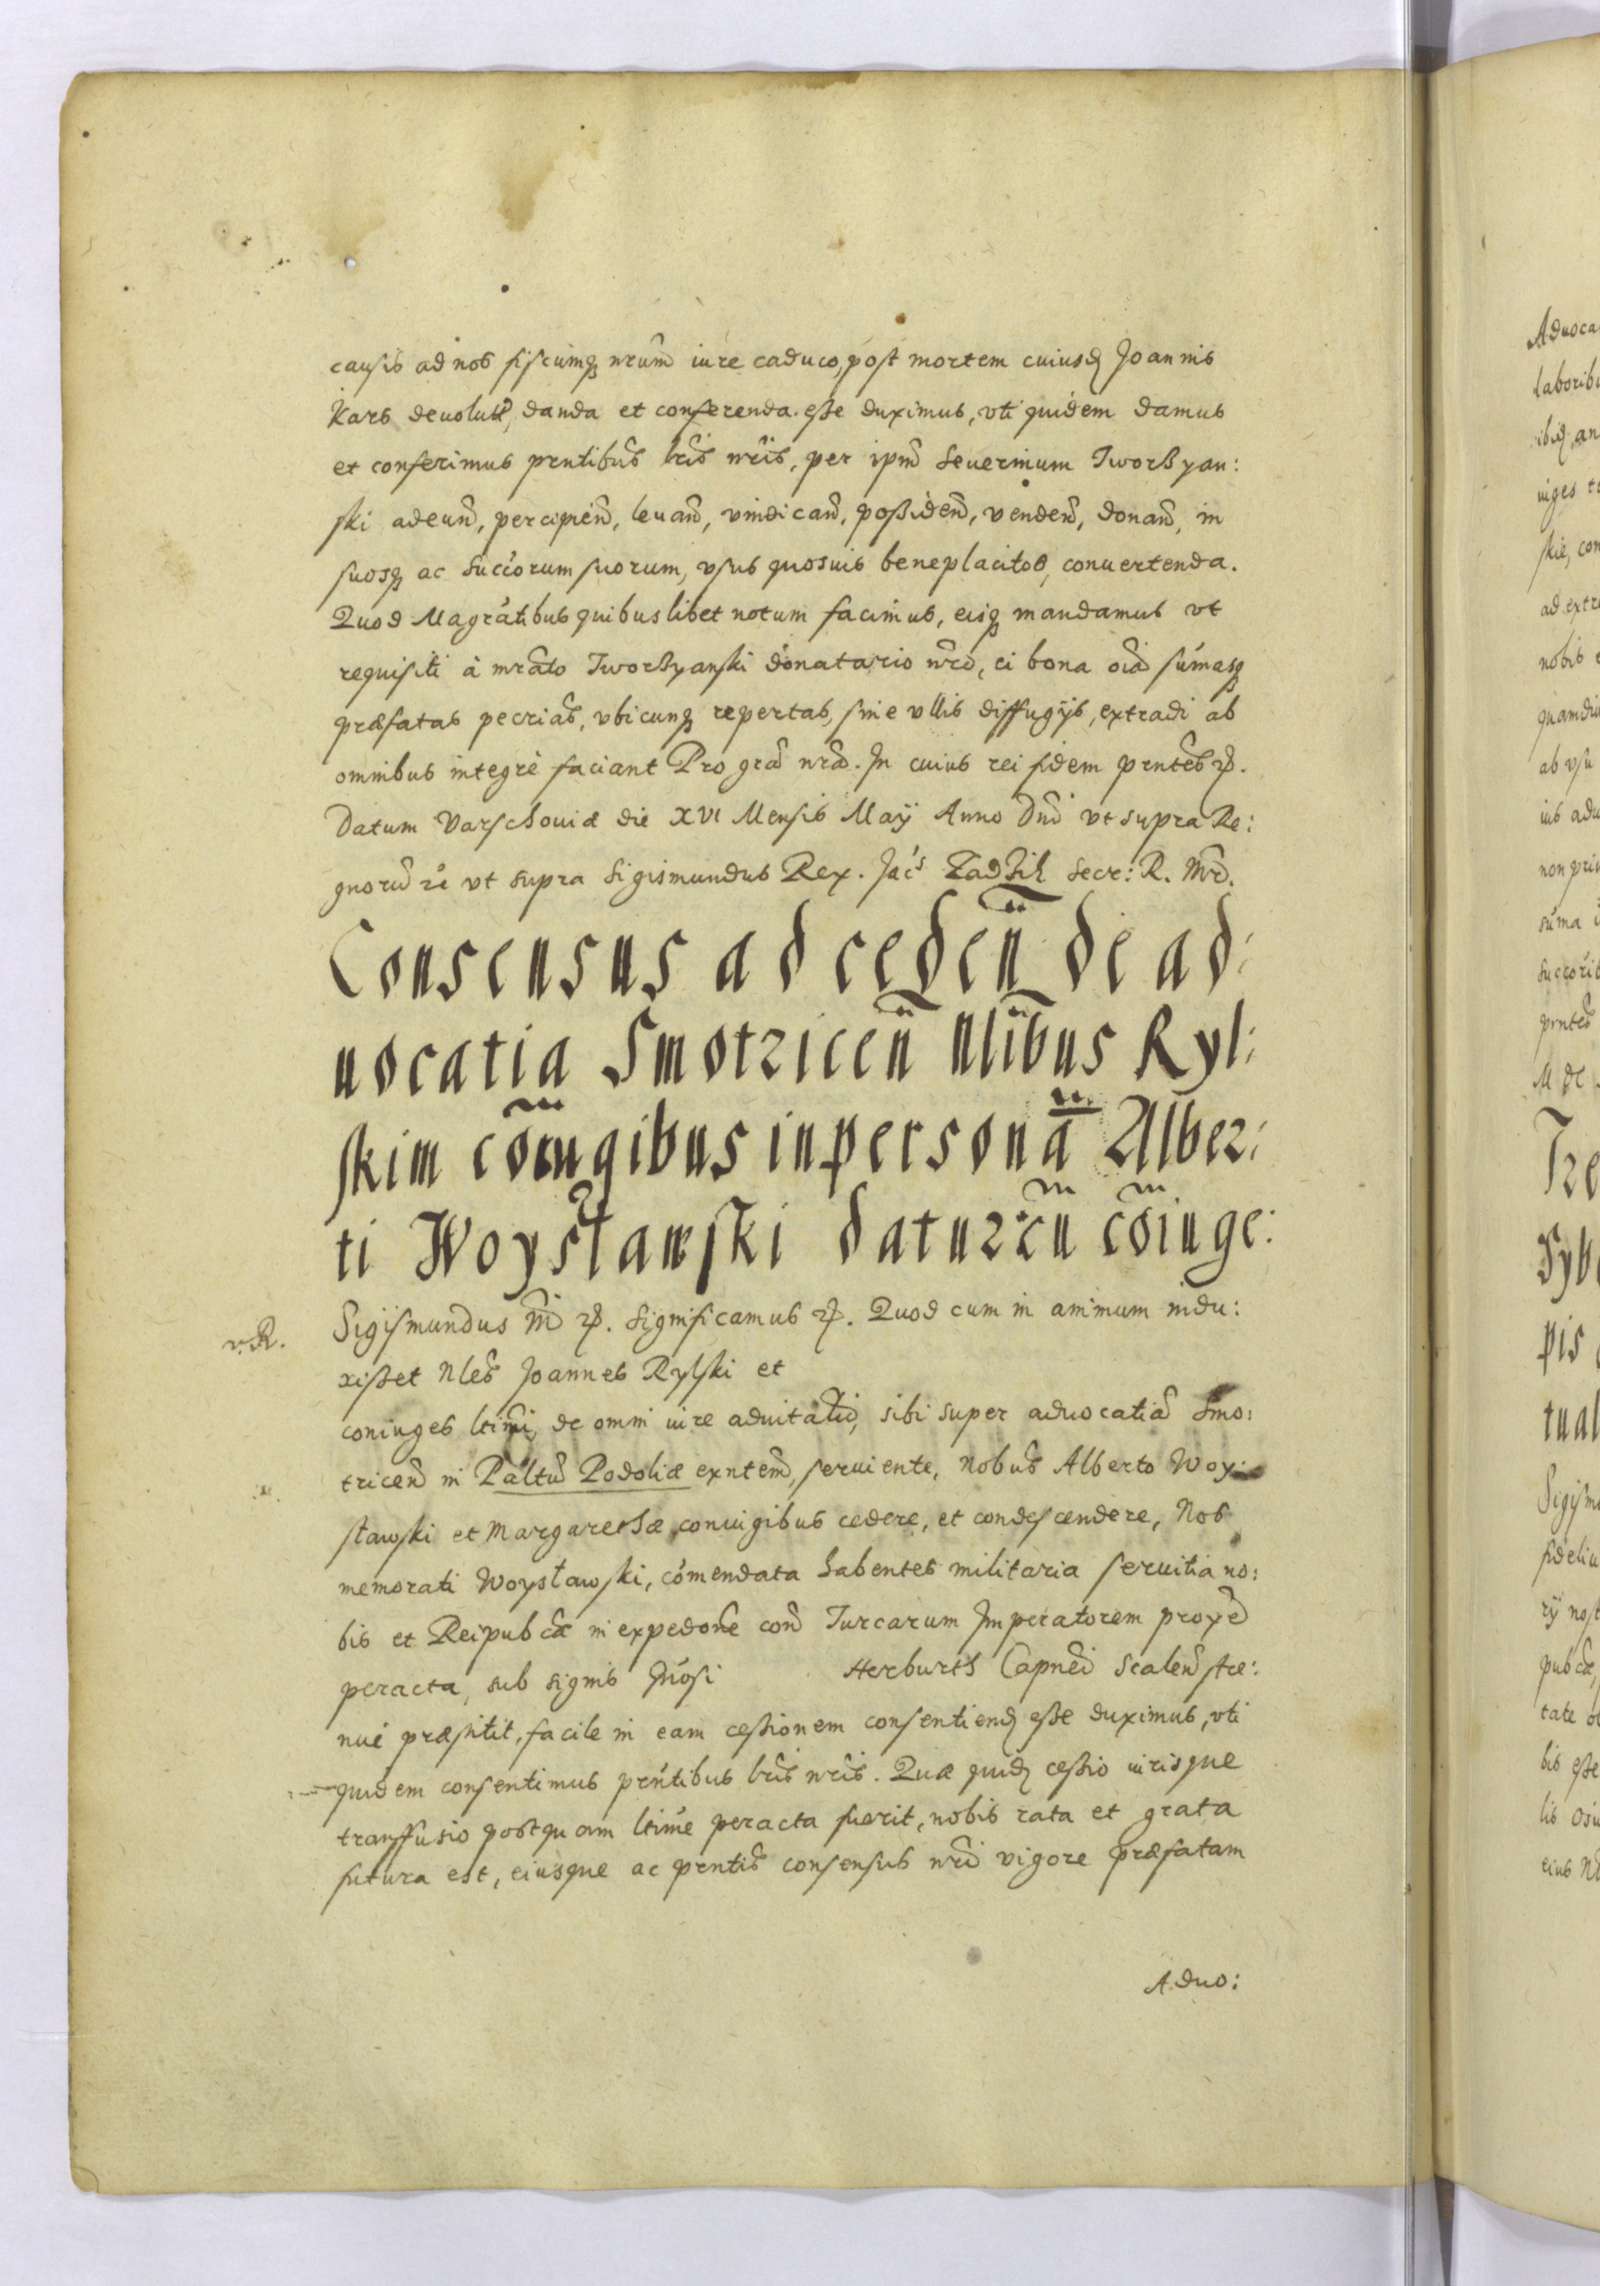 causis ad nos fiscumq nrum iure caduco, post mortem cuiusd Joannis
Kars deuolut, danda et conferenda esse duximus, vti quidem damus
et conferimus prntibus lris nris, per ipm Seuerinum Tworßyan:
ski adeun, percipien, leuan, vindican, possiden, venden, donan, in
suosq ac succorum suorum, vsus quosuis beneplacitos, conuertenda.
Quod Magratibus quibuslibet notum facimus, eisq mandamus vt
requisiti à mrato Tworßyanski donatario nro, ei bona oia sumasq
præfatas pecrias, vbicunq repertas, sine vllis diffugijs, extradi ab
omnibus integrè faciant Pro gra nra. In cuius rei fidem prntes ꝛ.
Datum Varschouiæ die XVI Mensis Maÿ Anno Dni vt supra Re:
gnoru ꝛc vt supra Sigismundus Rex. Jacs Zadzik Secr: R. Mtis.
Consensus ad ceden de ad:
uocatia Smotricen Nlibus Ryl:
skim coniugibus in persona Alber:
ti Woysławski datur cu coiuge:
v. R.
Sigismundus III ꝛ. Significamus ꝛ. Quod cum in animum indu:
xisset Nles Joannes Rylski et
coniuges ltimi, de omni iure aduitalio, sibi super aduocatia Smo:
tricen in Paltu Podoliæ exntem, seruiente, Nobus Alberto Woy:
sławski et Margarethæ coniugibus cedere, et condescendere, Nos
memorati Woysławski, comendata habentes militaria seruitia no:
bis et Reipubcæ in expedone con Turcarum Imperatorem proxe
peracta, sub signis Gnosi Herburth Capnei Scalen stre:
nuè præstitit, facile in eam cessionem consentiend esse duximus, vti
quidem consentimus prntibus lris nris. Quæ quid cessio iurisque
transfusio postquam ltime peracta fuerit, nobis rata et grata
futura est, eiusque ac prntis consensus nri vigore præfatam
Aduo: